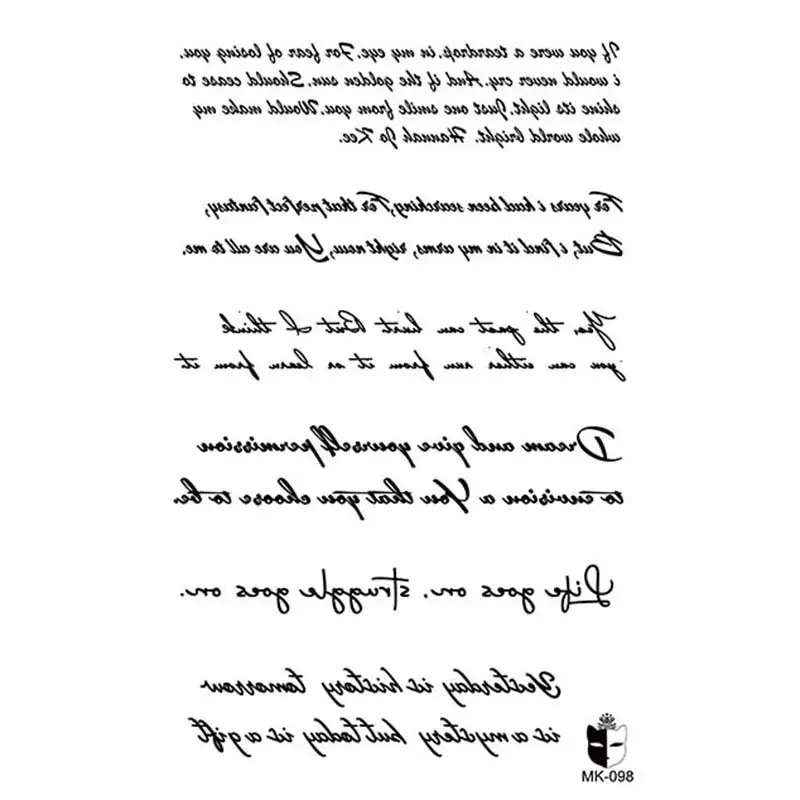 If you were a teardrop. in my eye. For fear of losing you.
i would never cry. And if the golden sun. Should cease to
shine its light. Just one smile from you. Would make my
whole world bright. Hannah Jo Kee.
For years i had been searching, For that perfect fantasy,
But, i find it in my arms, right now, You are all to me.
Yes, the past can hurt But I think
you can either run from it or learn from it
Dream and give yourself permission
to envision a You that you choose to be.
Life goes on. struggle goes on.
Yesterday is history tomorrow
is a mystery but today is a gift
MK-098